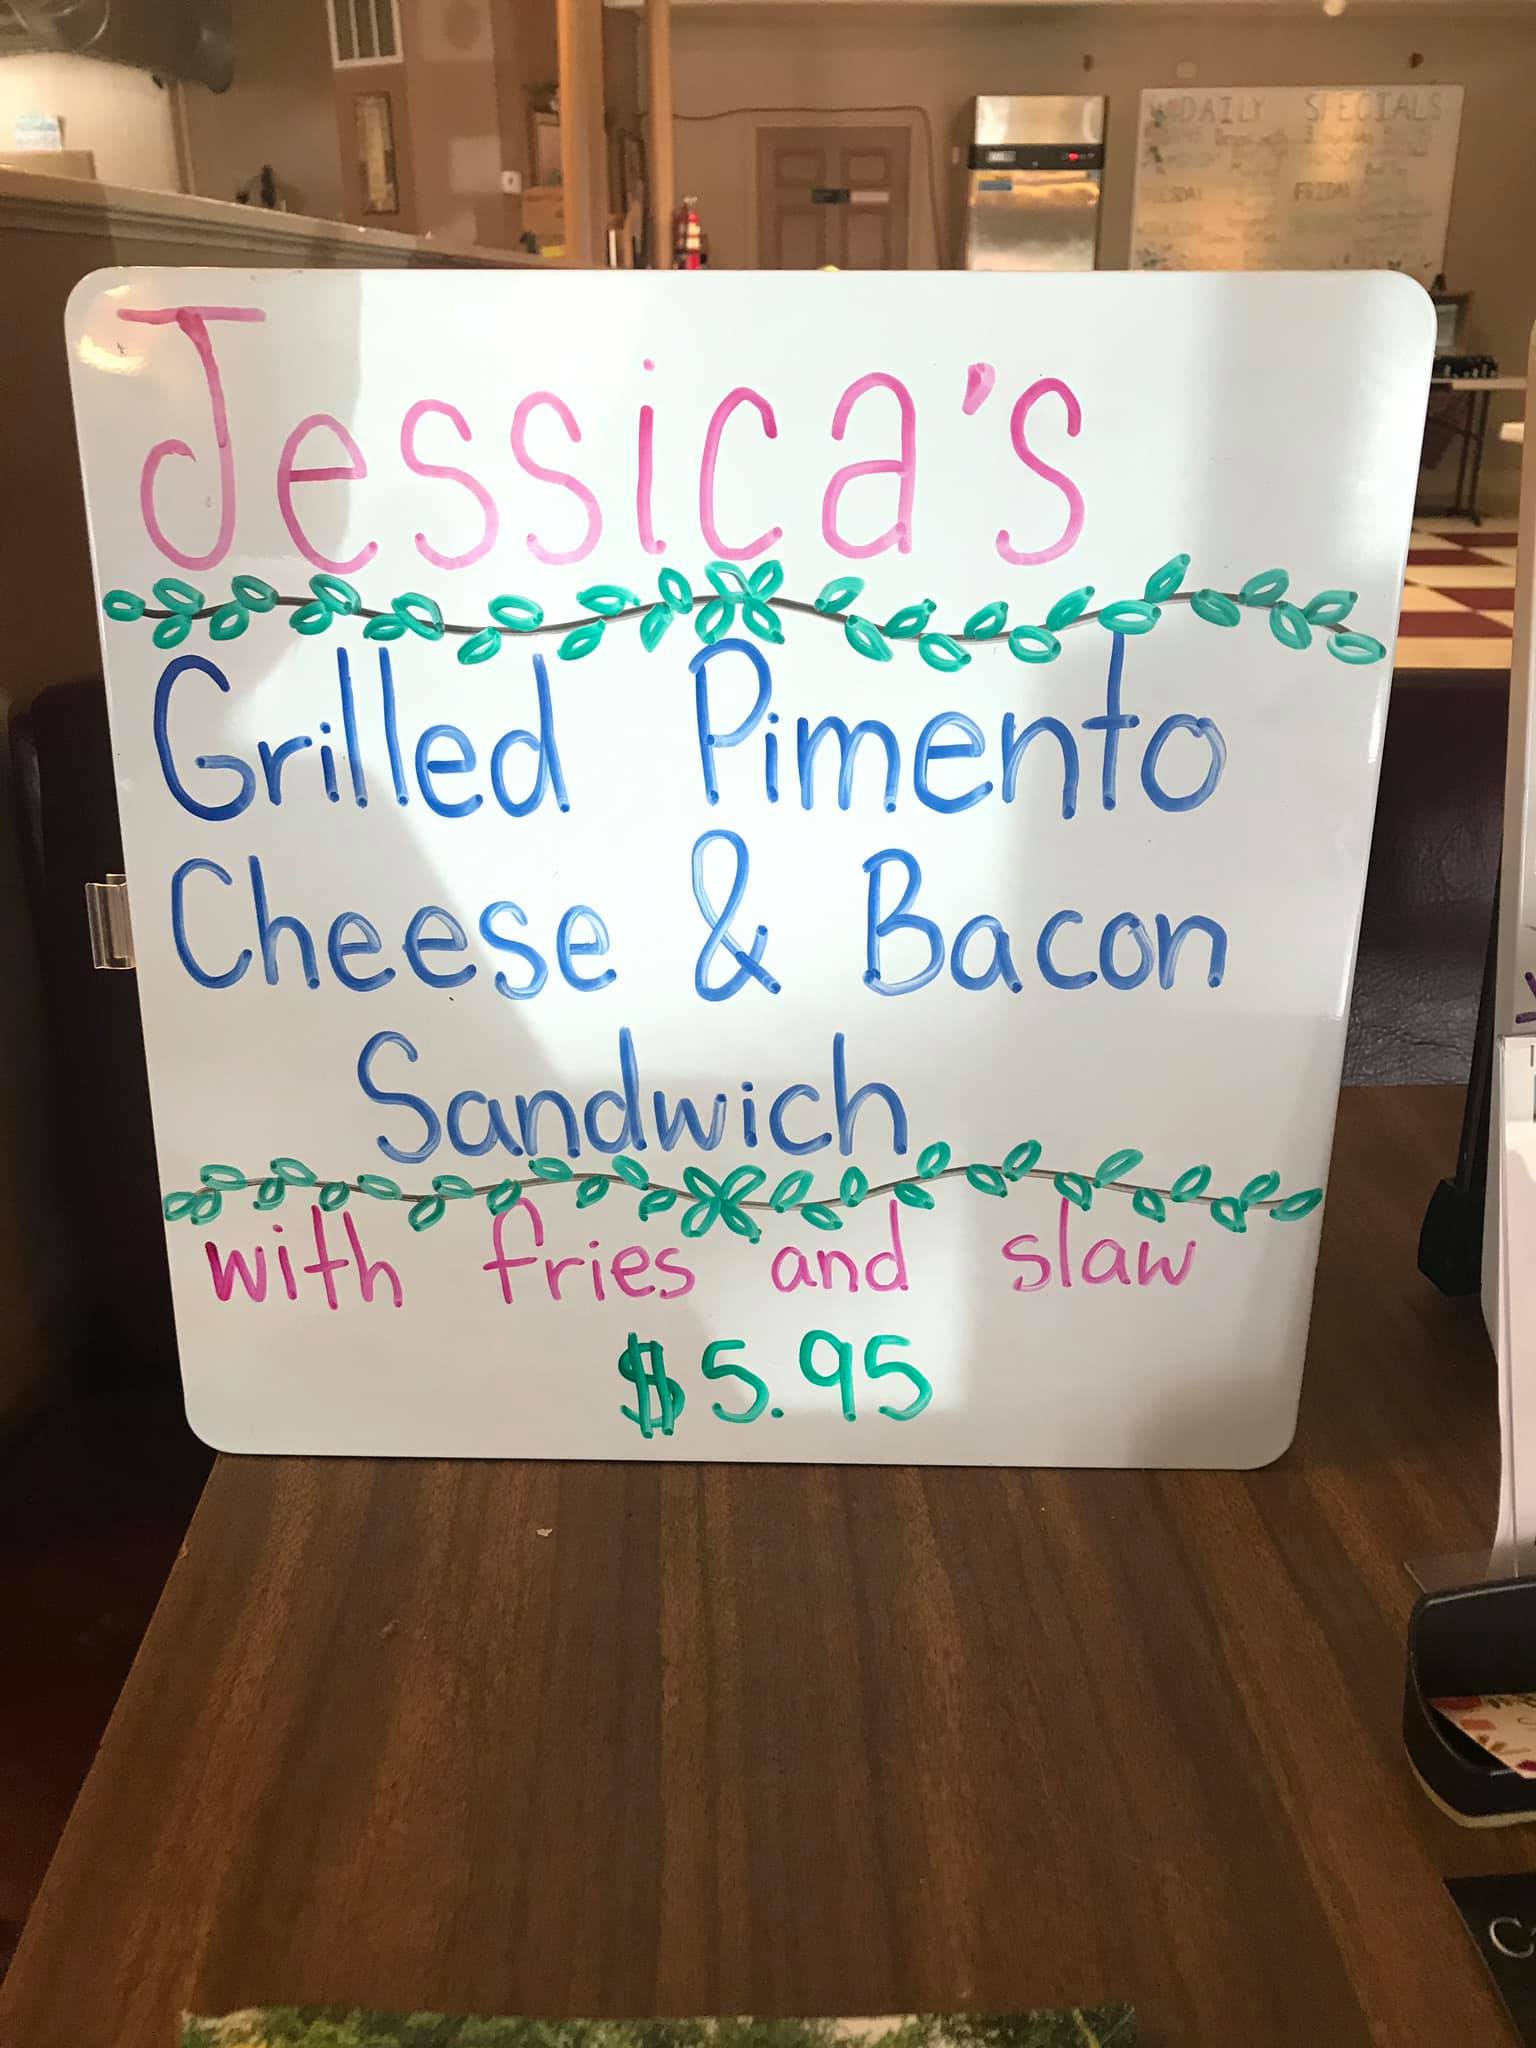 DAILY SPECIALS
FRIDAY
Jessica's
Grilled Pimento
Cheese & Bacon
Sandwich
with fries and slaw
$5.95